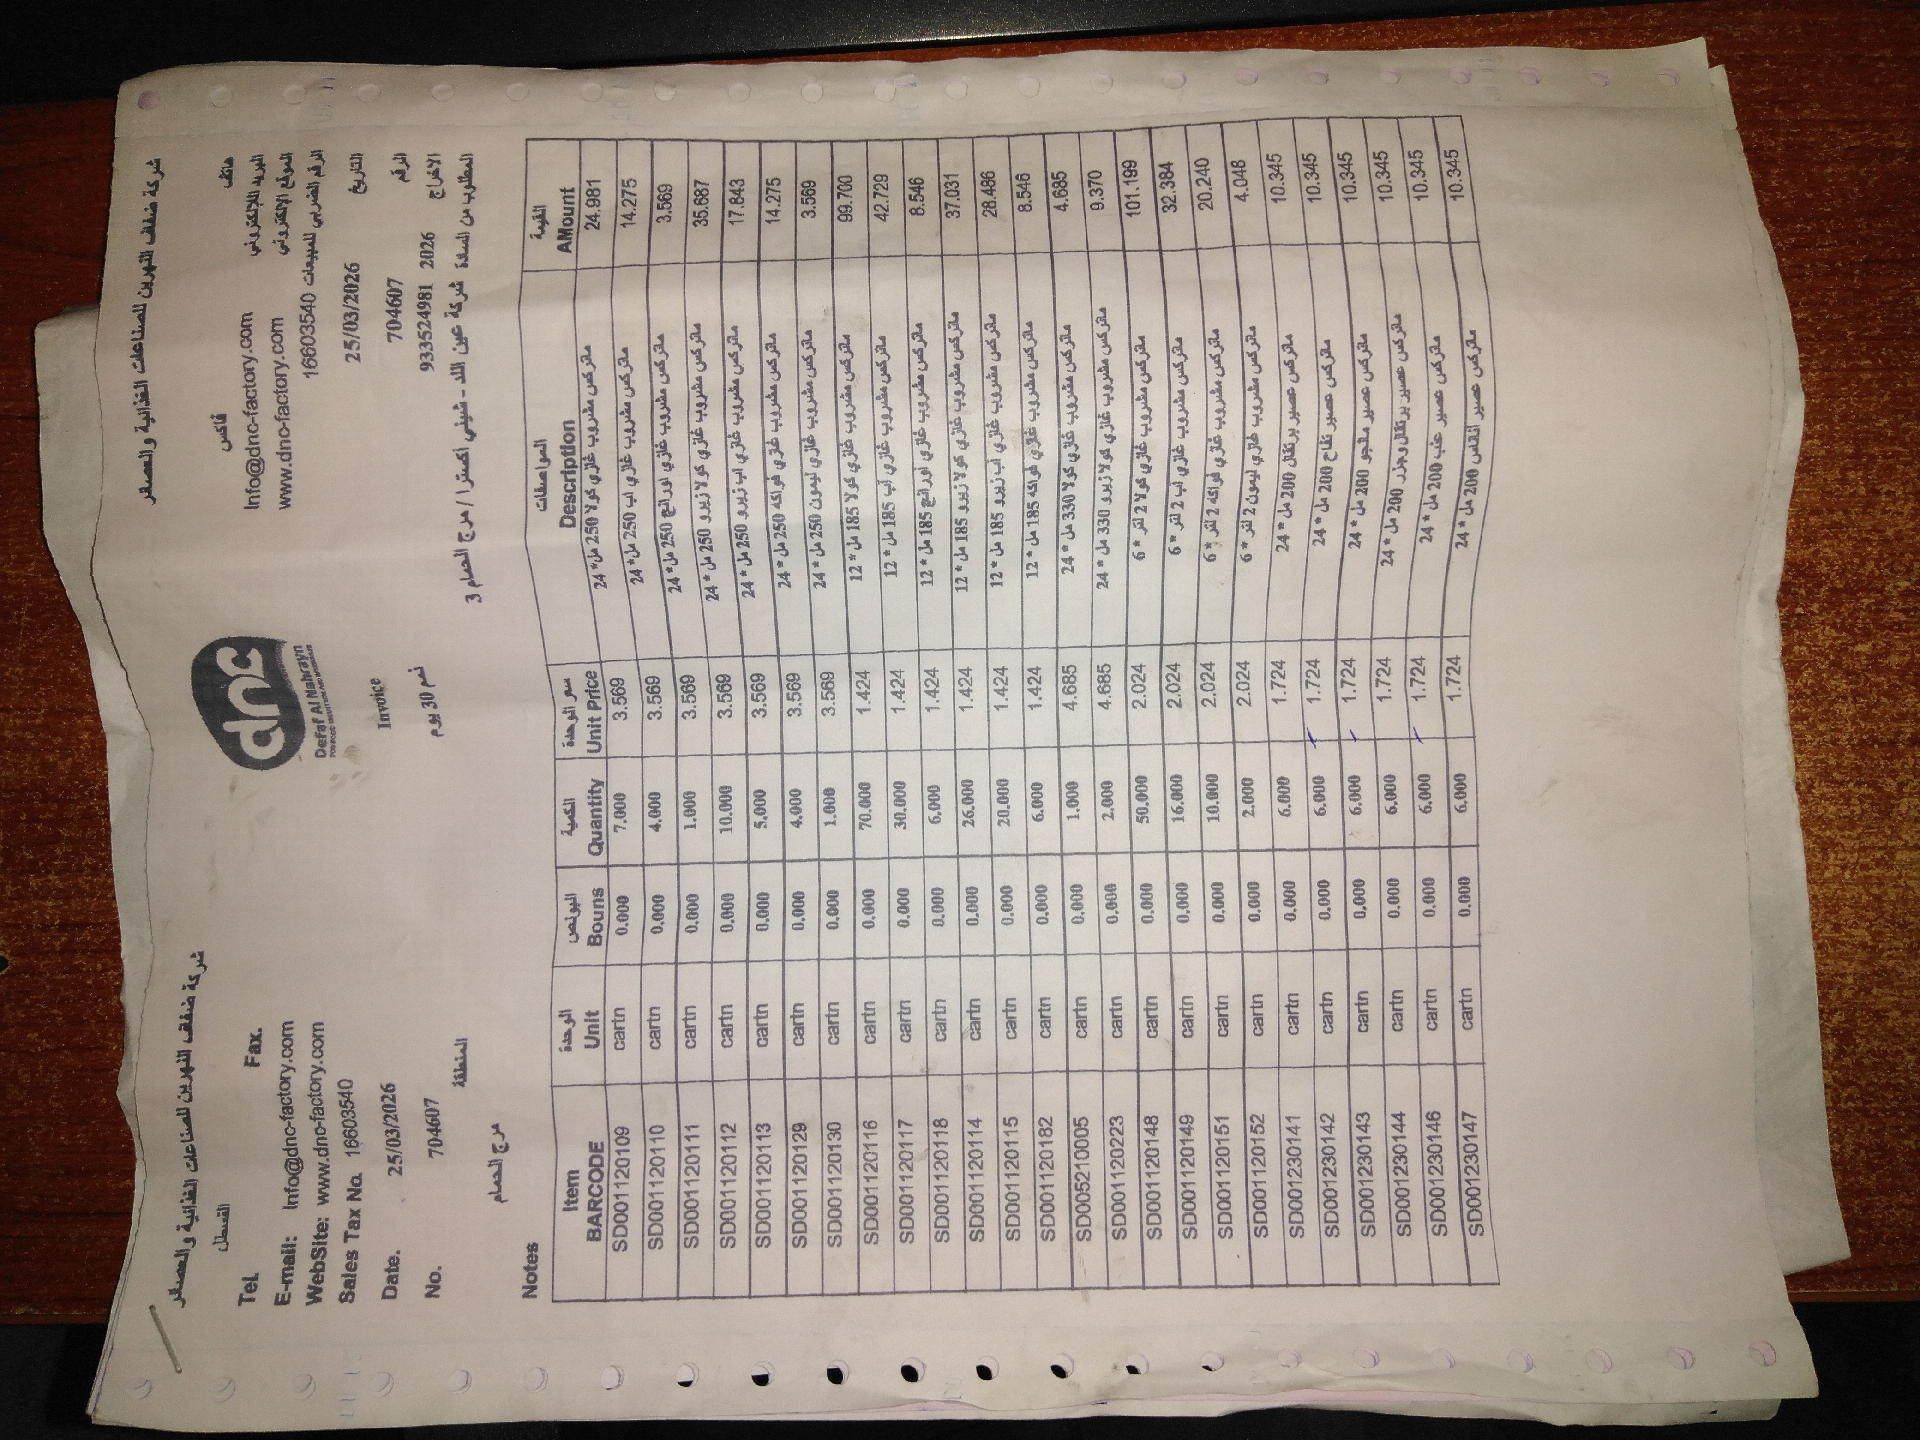 شركة ضفاف النهرين للصناعات الغذائية والعصائر
شركة ضفاف النهرين للصناعات الغذائية والعصائر
القسطل
Tel. Fax. فاكس هاتف
E-mail: Info@dnc-factory.com Info@dnc-factory.com البريد الالكتروني
WebSite: www.dnc-factory.com www.dnc-factory.com الموقع الالكتروني
Sales Tax No. 16603540 16603540 الرقم الضريبي للمبيعات
dnc
Defaf Al Nahrayn
Date. 25/03/2026 25/03/2026 التاريخ
Invoice
No. 704607 704607 الرقم
ذمم 30 يوم 933524981 2026 الاخراج
المنطقة
مرج الحمام
المطلوب من السادة شركة عين اللد - شيني اكسترا / مرج الحمام 3
Notes
الوحدة البونص الكمية سعر الوحدة المواصفات القيمة
Item BARCODE Unit Bouns Quantity Unit Price Description AMount
SD001120109 cartn 0.000 7.000 3.569 ماتركس مشروب غازي كولا 250 مل* 24 24.981
SD001120110 cartn 0.000 4.000 3.569 ماتركس مشروب غازي اب 250 مل* 24 14.275
SD001120111 cartn 0.000 1.000 3.569 ماتركس مشروب غازي اورانج 250 مل* 24 3.569
SD001120112 cartn 0.000 10.000 3.569 ماتركس مشروب غازي كولا زيرو 250 مل * 24 35.687
SD001120113 cartn 0.000 5.000 3.569 ماتركس مشروب غازي اب زيرو 250 مل * 24 17.843
SD001120129 cartn 0.000 4.000 3.569 ماتركس مشروب غازي فواكه 250 مل * 24 14.275
SD001120130 cartn 0.000 1.000 3.569 ماتركس مشروب غازي ليمون 250 مل * 24 3.569
SD001120116 cartn 0.000 70.000 1.424 ماتركس مشروب غازي كولا 185 مل * 12 99.700
SD001120117 cartn 0.000 30.000 1.424 ماتركس مشروب غازي أب 185 مل * 12 42.729
SD001120118 cartn 0.000 6.000 1.424 ماتركس مشروب غازي اورانج 185 مل * 12 8.546
SD001120114 cartn 0.000 26.000 1.424 ماتركس مشروب غازي كولا زيرو 185 مل * 12 37.031
SD001120115 cartn 0.000 20.000 1.424 ماتركس مشروب غازي اب زيرو 185 مل * 12 28.486
SD001120182 cartn 0.000 6.000 1.424 ماتركس مشروب غازي فواكه 185 مل * 12 8.546
SD005210005 cartn 0.000 1.000 4.685 ماتركس مشروب غازي كولا 330 مل * 24 4.685
SD001120223 cartn 0.000 2.000 4.685 ماتركس مشروب غازي كولا زيرو 330 مل * 24 9.370
SD001120148 cartn 0.000 50.000 2.024 ماتركس مشروب غازي كولا 2 لتر * 6 101.199
SD001120149 cartn 0.000 16.000 2.024 ماتركس مشروب غازي اب 2 لتر * 6 32.384
SD001120151 cartn 0.000 10.000 2.024 ماتركس مشروب غازي فواكه 2 لتر * 6 20.240
SD001120152 cartn 0.000 2.000 2.024 ماتركس مشروب غازي ليمون 2 لتر * 6 4.048
SD001230141 cartn 0.000 6.000 1.724 ماتركس عصير برتقال 200 مل * 24 10.345
SD001230142 cartn 0.000 6.000 1.724 ماتركس عصير تفاح 200 مل * 24 10.345
SD001230143 cartn 0.000 6.000 1.724 ماتركس عصير مانجو 200 مل * 24 10.345
SD001230144 cartn 0.000 6.000 1.724 ماتركس عصير برتقال وجزر 200 مل * 24 10.345
SD001230146 cartn 0.000 6.000 1.724 ماتركس عصير عنب 200 مل * 24 10.345
SD001230147 cartn 0.000 6.000 1.724 ماتركس عصير اناناس 200 مل * 24 10.345